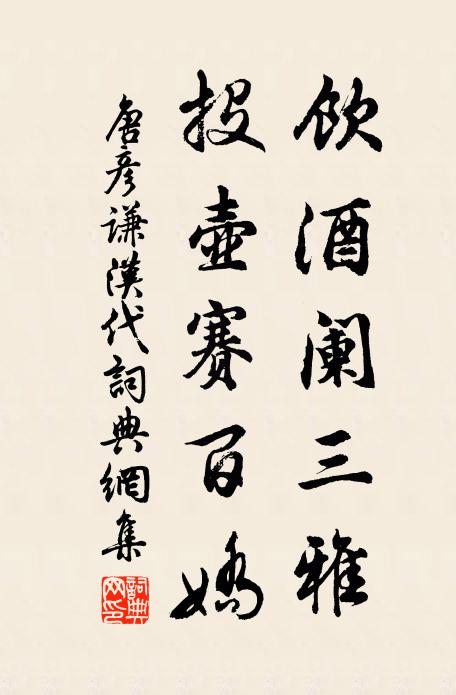 飲酒阑三雅
投壺賽百嬌
唐彦謙漢代詞典網集
詞典网印